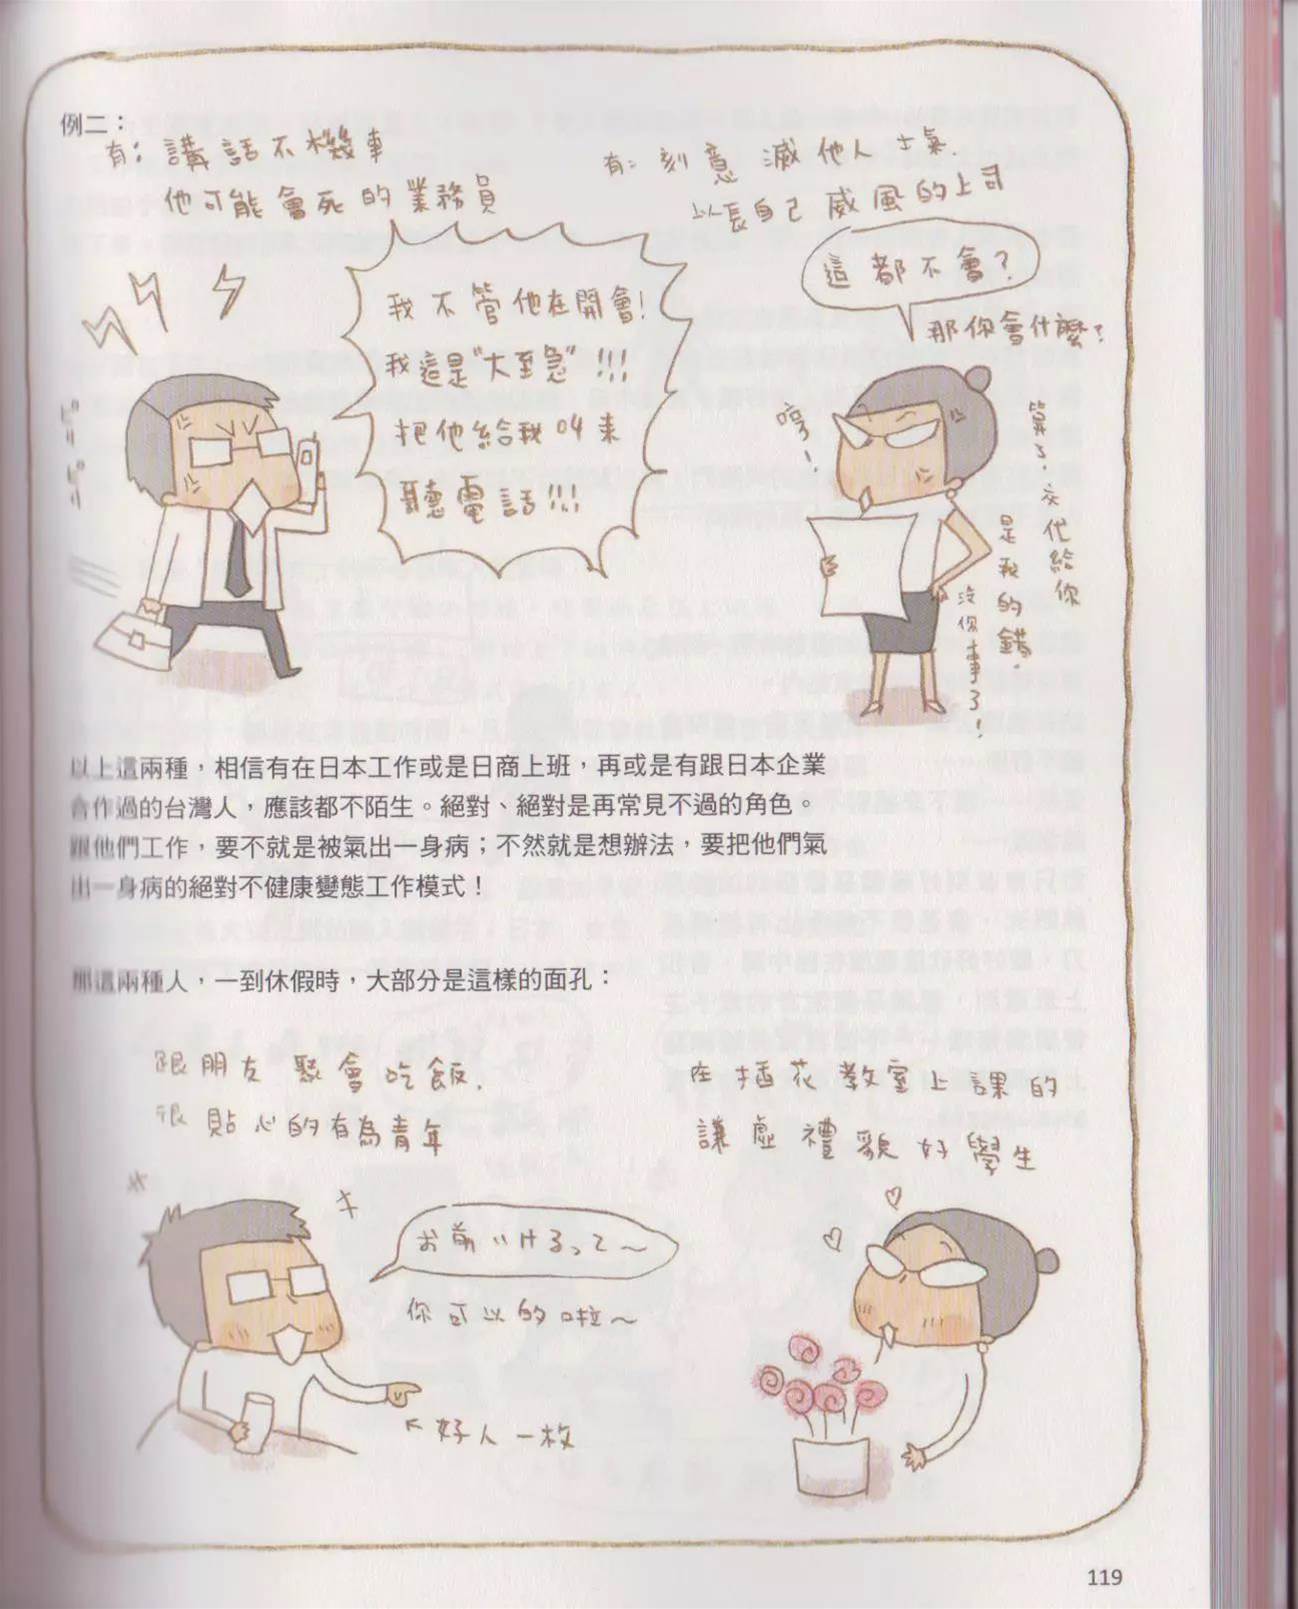 例二：
有：講話不機車
他可能會死的業務員
有：刻意滅他人士氣
以長自己威風的上司
我不管他在開會！
我這是"大至急"!!!
把他給我叫來
聽電話!!!
這都不會？
那你會什麼？
哼！
算了，交代給你
是我的錯。
沒你事了！
以上這兩種，相信有在日本工作或是日商上班，再或是有跟日本企業
會作過的台灣人，應該都不陌生。絕對、絕對是再常見不過的角色。
跟他們工作，要不就是被氣出一身病；不然就是想辦法，要把他們氣
出一身病的絕對不健康變態工作模式！
那這兩種人，一到休假時，大部分是這樣的面孔：
跟朋友聚會吃飯，
很貼心的有為青年
在插花教室上課的
謙虛禮貌好學生
お前いけるって～
你可以的啦～
好人一枚
119